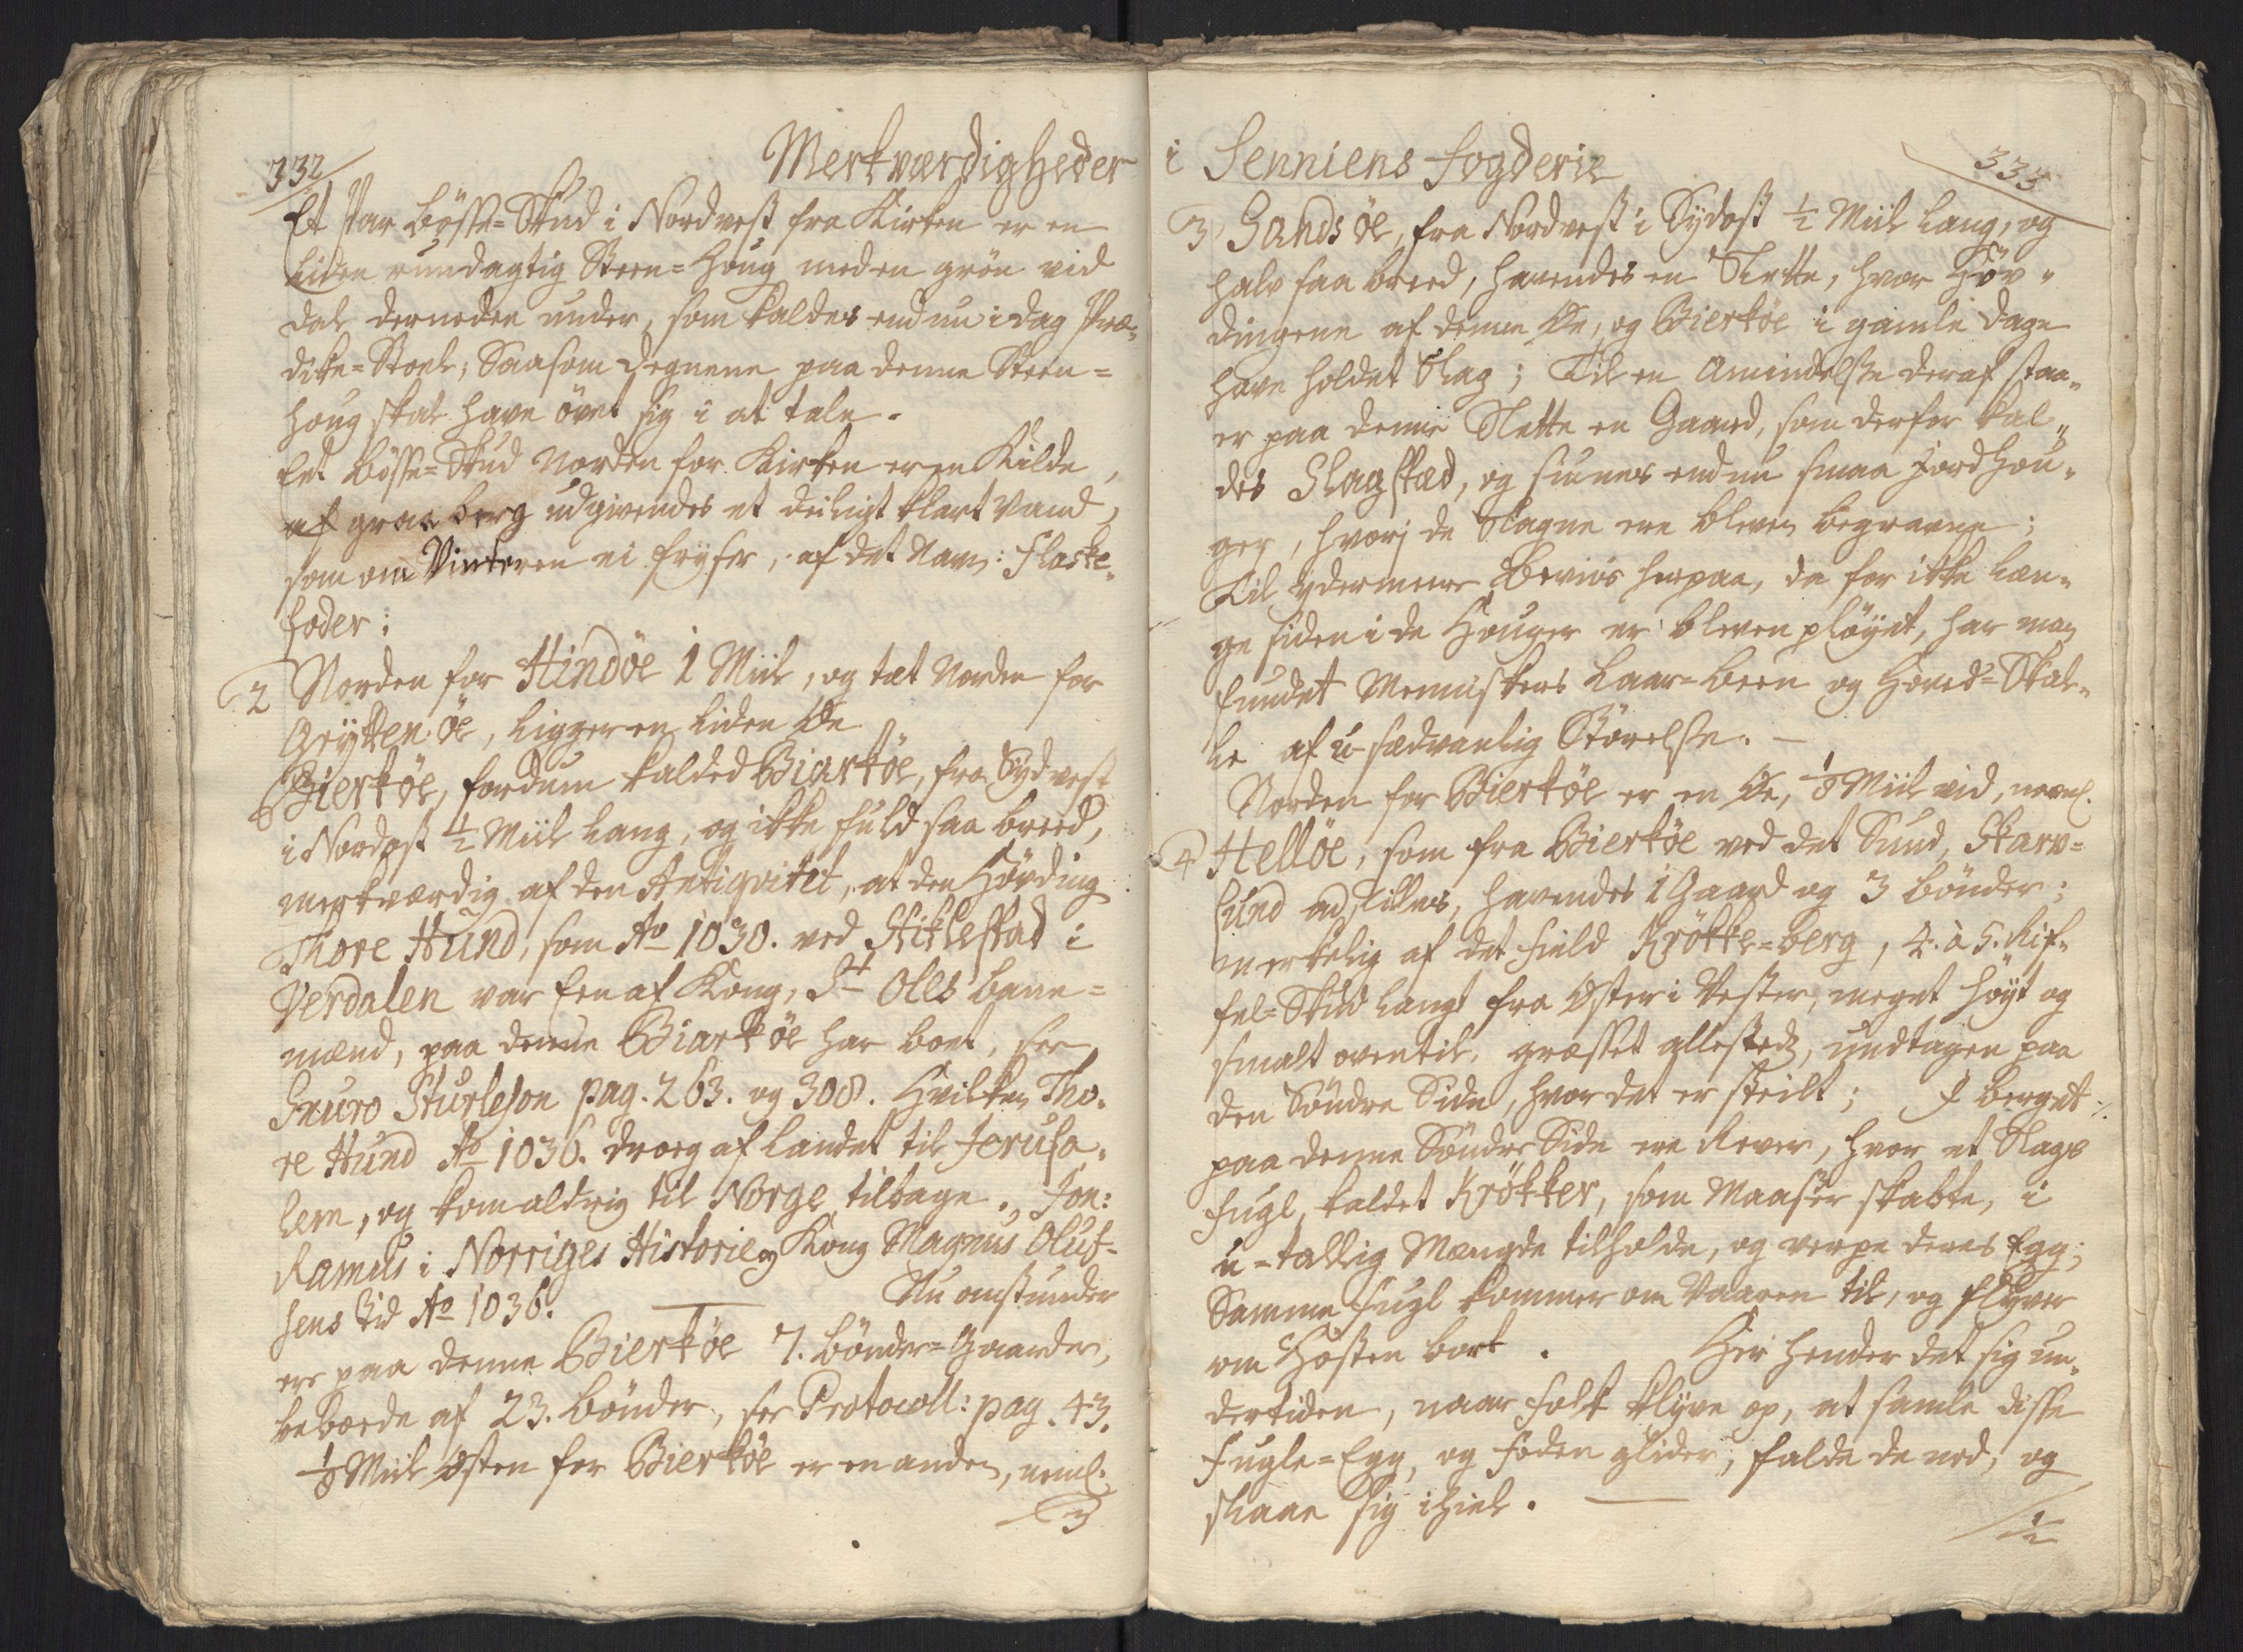 332
Merkværdigheder
Et Par Bösse-Skud i Nordvest fra Kirken er en
liden rundagtig Steen-Houg med en grön vid
Dal derneden under, som kaldes endnu i dag Præ-
dike-Stoel; Saasom Degnene paa denne Steen-
houg skal have övet sig i at tale.
Eet Bösse-Skud Norden for Kirken er en Kilde,
af graa berg udgivendes et deiligt klart Vand,
som om Vinteren ei fryser, af det Navn: Flaske-
foder;
2 Norden for Hindöe 1 Miil, og tæt Norden for
Gryttenöe, ligger en liden Öe
Bierköe, fordum kalded Biarköe, fra Sydvest
i Nordost ½ Miil lang, og ikke fuld saa breed,
merkværdig af den Antiqvitet, at den Hövding
Thore Hund, som Ao 1030. ved Stiklestad i
Verdalen var Een af Kong, St Oles bane-
mænd, paa denne Biarköe har boet, see
Snuro Sturleson pag. 263. og 308. Hvilken Tho-
re Hund Ao 1036. droeg af Landet til Jerusa-
lem, og kom aldrig til Norge tilbage., Jon:
Ramus i Norriges Historie og Kong Magnus Oluf-
sens tid Ao 1036. — Nu omstunder
ere paa denne Bierköe 7. bönder-Gaarder,
beboede af 23. bönder, see Protocoll: pag. 43.
⅛ Miil Östen for Bierköe er en anden, neml.
3
i Senniens Fogderie
333
3 Sandsöe, fra Nordvest i Sydost ½ Miil lang, og
halv saa breed, havendes en Slette, hvor Höv-
dingene af denne Öe, og Bierköe i gamle dage
have holdet Slag; Til en Amindelse deraf staa-
er paa denne Slette en Gaard, som derfor kal-
des Slagstad, og finnes endnu smaa Jordhou-
ger, hvorj de Slagne ere bleven begravne;
Til ydermeere Beviis herpaa, da for ikke læn-
ge siden i de Houger er bleven plöyet, har man
fundet Menniskers Laar-been og Hoved-Skal-
le af u-sædvanlig Störelse. —
Norden for Bierköe er en Öe, ⅛ Miil vid, navnl.
4 Hellöe, som fra Bierköe ved det Sund, Skarv-
sund adskilles, havendes 1 Gaard og 3 bönder;
merkelig af det field Krökke-berg, 4. à 5. Rif-
fel-Skud langt fra Öster i Vester, meget höyt og
smalt oventil, græsset allested, undtagen paa
den Söndre Side, hvor det er steilt; I berget
paa denne Söndre Side ere Rever, hvor et Slags
fugl, kaldet Krökker, som Maaser skabte, i
u-tallig Mængde tilholde, og verpe deres Egg;
Samme fugl kommer om Vaaren til, og flyver
om Hösten bort. Her hender det sig un-
dertiden, naar folk klyve op, at samle disse
Fugle-Egg, og foden glider, falde de ned, og
slaae sig ihiel. —